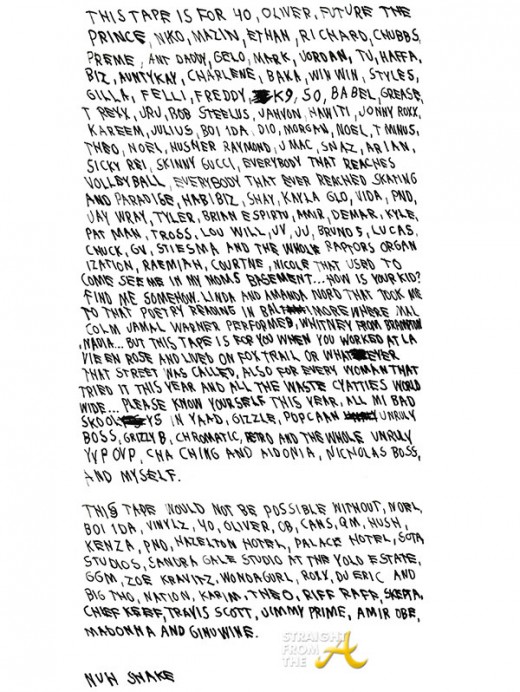 THIS TAPE IS FOR 40, OLIVER, FUTURE THE
PRINCE, NIKO, MAZIN, ETHAN, RICHARD, CHUBBS,
PREME, ANT DADDY, GELO, MARK, JORDAN, TU, HAFFA,
BIZ, AUNTYKAY, CHARLENE, BAKA, WIN WIN, STYLES,
GILLA, FELLI, FREDDY, K9, 50, BABEL, GREASE,
T REXX, JRU, BOB STEELUS, JAHVON, HAWITI, JONNY ROXX,
KAREEM, JULIUS, BOI 1DA, DIO, MORGAN, NOEL, T MINUS,
THEO, NOEL, HUSHER RAYMOND, J MAC, SNAZ, ARIAN,
SICKY REI, SKINNY GUCCI, EVERYBODY THAT REACHES
VOLLEYBALL, EVERYBODY THAT EVER REACHED SKATING
AND PARADISE, HABIBIZ, SHAY, KAYLA GLO, VIDA, PND,
JAY WRAY, TYLER, BRIAN ESPIRTU, AMIR, DEMAR, KYLE,
PAT MAN, TROSS, LOU WILL, JV, JJ, BRUNO 5, LUCAS,
CHUCK, GV, STIESMA AND THE WHOLE RAPTORS ORGAN
IZATION, RAEMIAH, COURTNE, NICOLE THAT USED TO
COME SEE ME IN MY MOMS BASEMENT... HOW IS YOUR KID?
FIND ME SOMEHOW. LINDA AND AMANDA NORD THAT TOOK ME
TO THAT POETRY READING IN BALTIMORE WHERE MAL
COLM JAMAL WARNER PERFORMED, WHITNEY FROM BRAMPTON
, NADIA... BUT THIS TAPE IS FOR YOU WHEN YOU WORKED AT LA
VIE EN ROSE AND LIVED ON FOXTRAIL OR WHATEVER
THAT STREET WAS CALLED, ALSO FOR EVERY WOMAN THAT
TRIED IT THIS YEAR AND ALL THE WASTE CYATTIES WORLD
WIDE... PLEASE KNOW YOURSELF THIS YEAR, ALL MI BAD
SKOOL YS IN YAAD, GIZZLE, POPCAAN UNRULY
BOSS, GRIZZLY B, CHROMATIC, RETRO AND THE WHOLE UNRULY
YVP OVP, CHA CHING AND AIDONIA, NICHOLAS BOSS,
AND MYSELF.
THIS TAPE WOULD NOT BE POSSIBLE WITHOUT, NOEL,
BOI 1DA, VINYLZ, 40, OLIVER, CB, CANS, QM, HUSH,
KENZA, PND, HAZELTON HOTEL, PALACE HOTEL, SOTA
STUDIOS, SANDRA GALE STUDIO AT THE YOLO ESTATE,
GGM, ZOE KRAVITZ, WONDAGURL, ROXX, DJ ERIC AND
BIG THO, NATION, KARIM, THEO, RIFF RAFF, SKEPTA,
CHIEF KEEF, TRAVIS SCOTT, JIMMY PRIME, AMIR OBE,
MADONNA AND GINUWINE.
STRAIGHT
FROM
THE A
NUH SHAKE